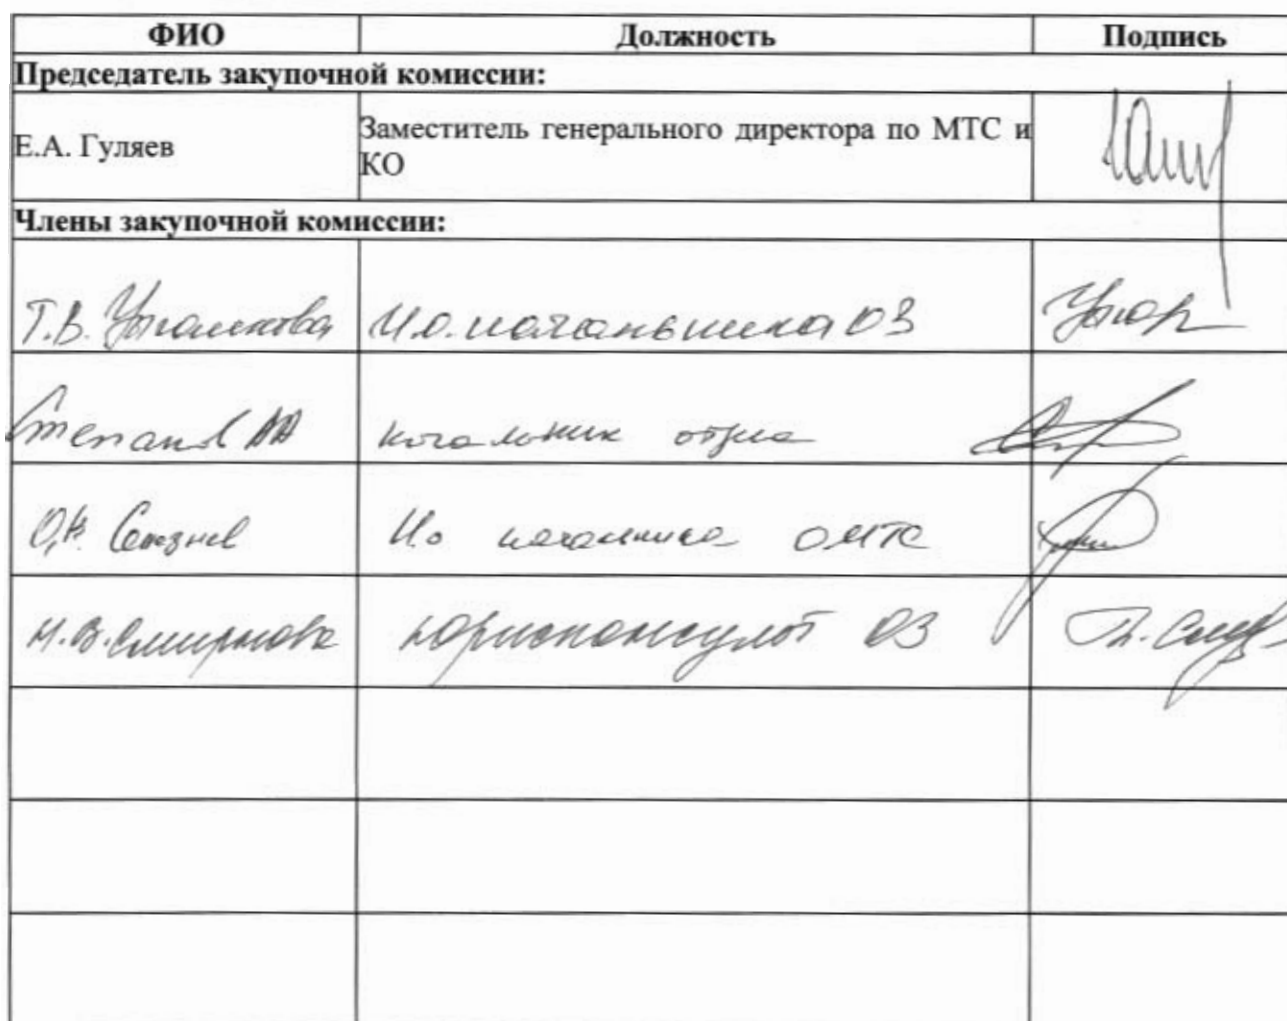 ФИО Должность Подпись
Председатель закупочной комиссии:
Е.А. Гуляев Заместитель генерального директора по МТС и
КО
Члены закупочной комиссии:
Т.В. И.о. начальника ОЗ
Степанов АА начальник отдела
И.о начальника ОМТС
Н.В. Смирнова юрисконсульт ОЗ